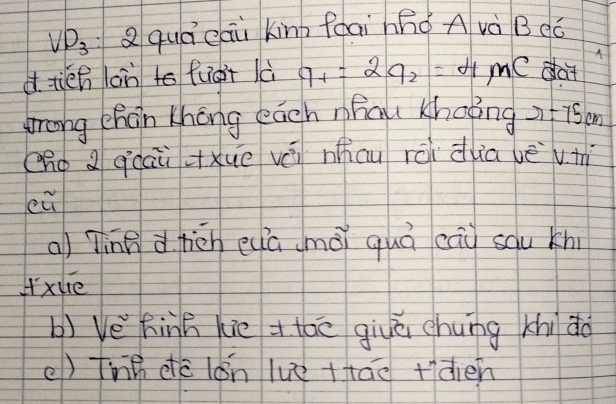 VD3: 2 quả cầu kim loại nhỏ A và B có
đ.tích lớn to lượt là q1 = 2q2 = 4 mC đặt
trong chân không cách nhau khoảng r=15cm
Cho 2 q'cầu txúc với nhau rồi đưa về v.trí
cũ
a) Tính đ.tích của mỗi quả cầu sau khi
txúc
b) Vẽ hình lực t tác giữa chúng khi đó
c) Tính độ lớn lực t tác t điện